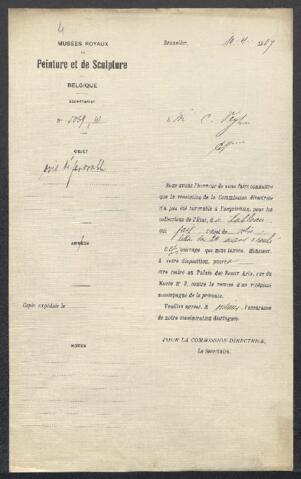 4
MUSÉES ROYAUX
DE
Peinture et de Sculpture
DE
BELGIQUE
SECRÉTARIAT
N°
OBJET
avis défavorable
ANNEXE
Copie expédiée le
NOTES
Bruxelles,
à M C.
Nous avons l'honneur de vous faire connaître
que la résolution de la Commission directrice
n'a pas été favorable à l'acquisition, pour les
collections de l'Etat, d tableau
qui fait l'objet de votre
lettre du
Cet ouvrage, que nous tenons, Monsieur,
à votre disposition, pourra
être retiré au Palais des Beaux Arts, rue du
Musée n° 9, contre la remise d'un récépissé
accompagné de la présente.
Veuillez agréer, M l'assurance
de notre considération distinguée.
POUR LA COMMISSION DIRECTRICE,
Le Secrétaire,